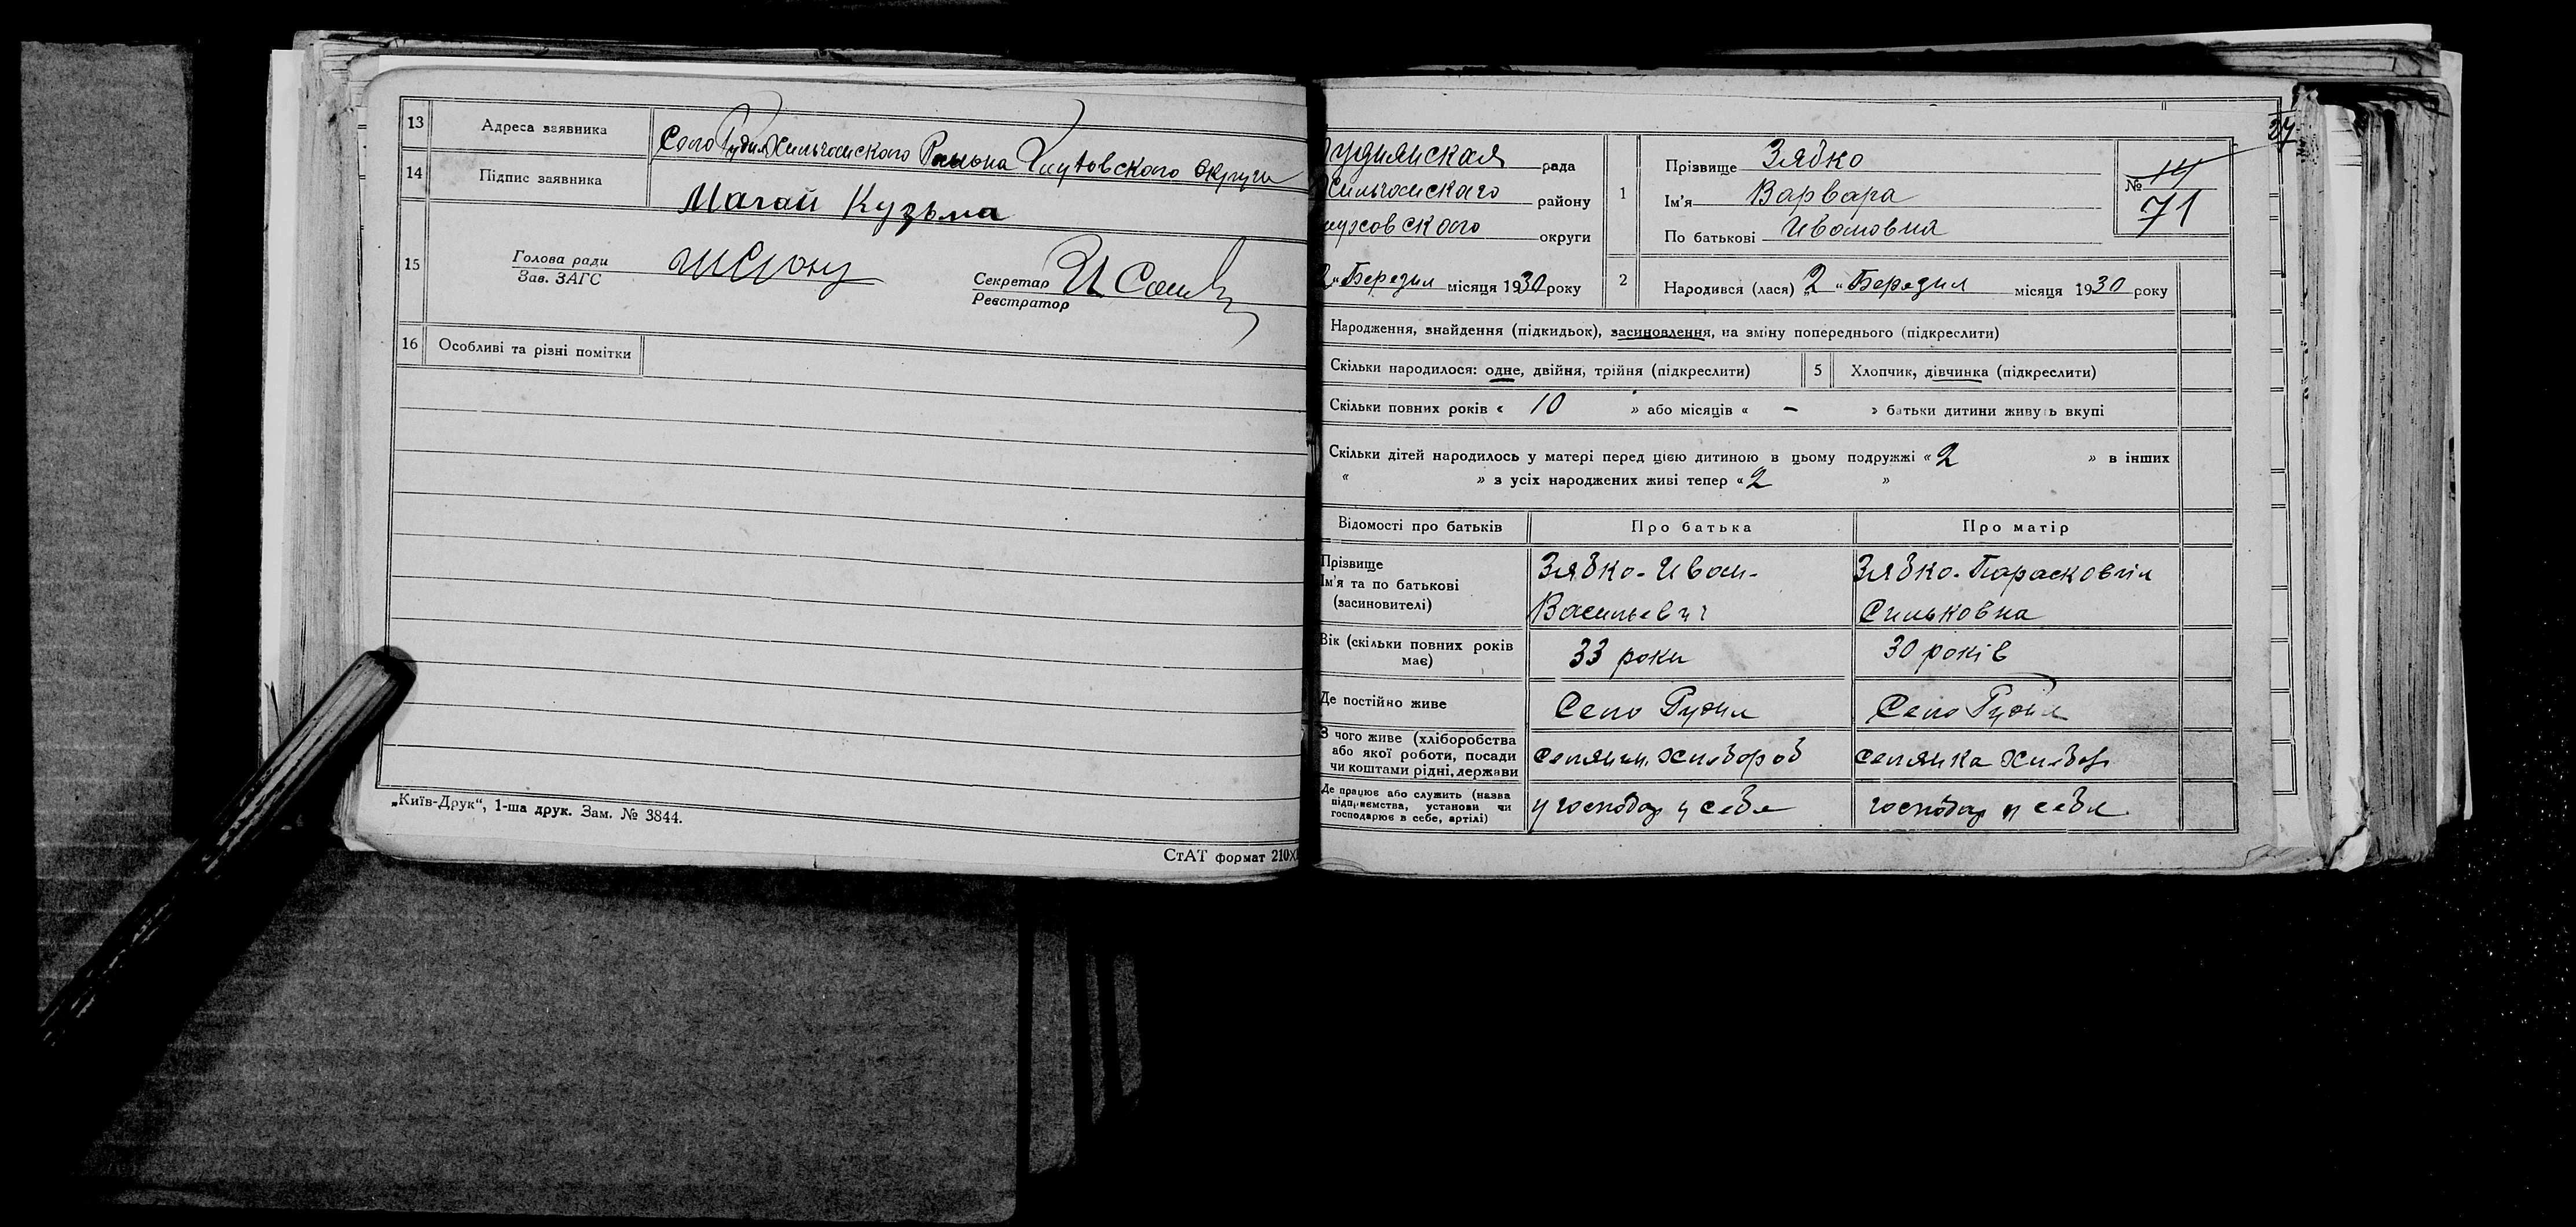 13 Адреса заявника Село Рудня Хильчанского Района Глуховского Округи
14 Підпис заявника Магай Кузьма
15 Голова ради
Зав. ЗАГС
Секретар
Реєстратор
16 Особливі та різні помітки
„Київ-Друк“, 1-ша друк. Зам. № 3844.
СтАТ формат 210×
27
рада
району
округи
2 „ Березня місяця 1930 року
1 Прізвище Зябко
Ім'я Варвара
По батькові Ивановна
№ 14
71
2 Народився (лася) „2“ Березня місяця 1930 року
Народження, знайдення (підкидьок), засиновлення, на зміну попереднього (підкреслити)
Скільки народилося: одне, двійня, трійня (підкреслити) 5 Хлопчик, дівчинка (підкреслити)
Скільки повних років « 10 » або місяців « – » батьки дитини живуть вкупі
Скільки дітей народилось у матері перед цією дитиною в цьому подружжі « 2 » в інших
« » з усіх народжених живі тепер « 2 »
Відомості про батьків Про батька Про матір
Прізвище
Ім'я та по батькові
(засиновителі)
Зябко - Иван -
Васильевич
Зябко - Парасковия
Сильковна
Вік (скільки повних років
має)
33 роки 30 років
Де постійно живе Село Рудня Село Рудня
З чого живе (хліборобства
або якої роботи, посади
чи коштами рідні, держави
селянин хлібороб селянка хлібор
Де працює або служить (назва
підприємства, установи чи
господарює в себе, артілі)
у господар у себе господар у себе